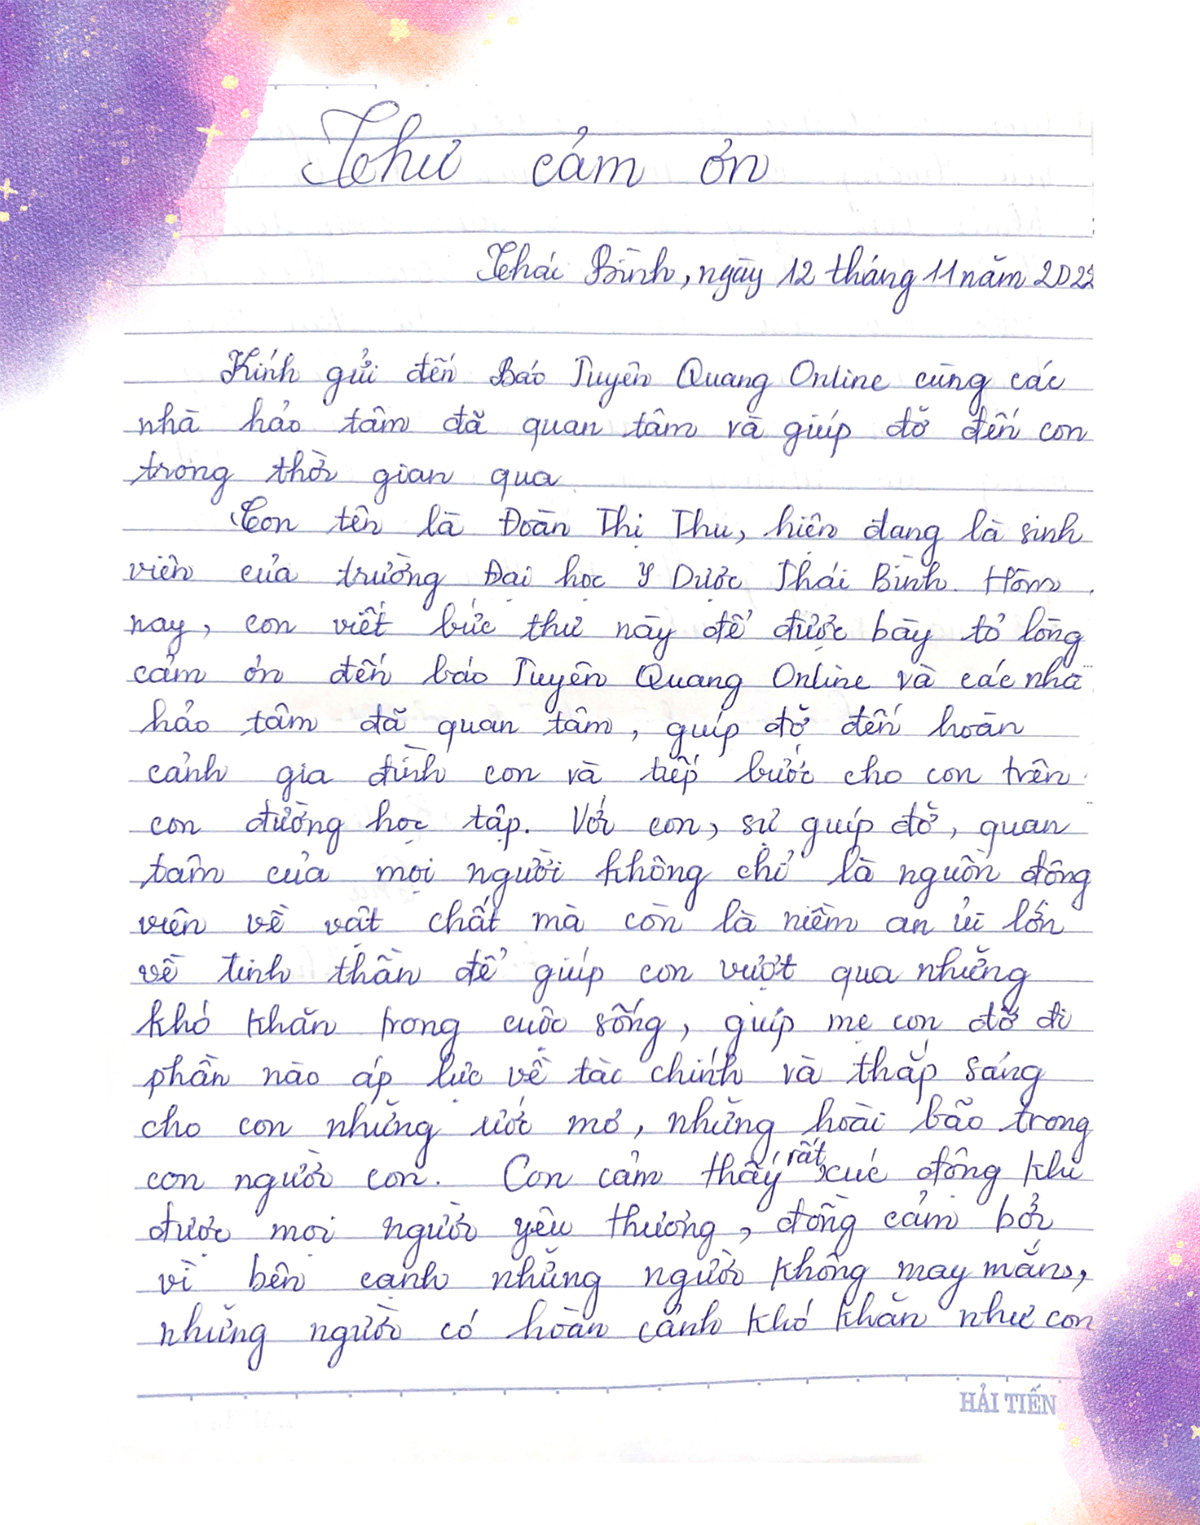 Thư cảm ơn
Thái Bình, ngày 12 tháng 11 năm 2022
Kính gửi đến Báo Tuyên Quang Online cùng các
nhà hảo tâm đã quan tâm và giúp đỡ đến con
trong thời gian qua
Con tên là Đoàn Thị Thu, hiện đang là sinh
viên của trường Đại học Y Dược Thái Bình. Hôm
nay, con viết bức thư này để được bày tỏ lòng
cảm ơn đến báo Tuyên Quang Online và các nhà
hảo tâm đã quan tâm, giúp đỡ đến hoàn
cảnh gia đình con và tiếp bước cho con trên
con đường học tập. Với con, sự giúp đỡ, quan
tâm của mọi người không chỉ là nguồn động
viên về vật chất mà còn là niềm an ủi lớn
về tinh thần để giúp con vượt qua những
khó khăn trong cuộc sống, giúp mẹ con đỡ đi
phần nào áp lực về tài chính và thắp sáng
cho con những ước mơ, những hoài bão trong
con người con. Con cảm thấy rất xúc động khi
được mọi người yêu thương, đồng cảm bởi
vì bên cạnh những người không may mắn,
những người có hoàn cảnh khó khăn như con
HẢI TIẾN